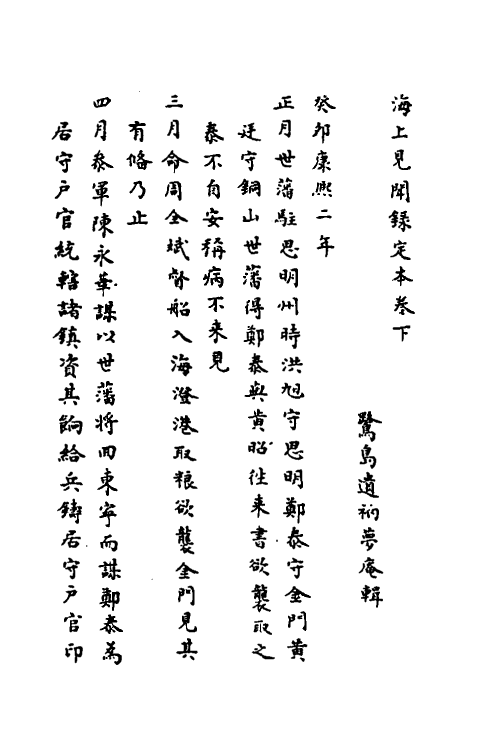 海上見聞錄定本卷下
鷺島遺衲夢庵輯
癸卯康熙二年
正月世藩駐思明州時洪旭守思明鄭泰守金門黃
廷守銅山世藩得鄭泰與黃昭往来書欲襲取之
泰不自安稱病不来見
三月命周全斌督船入海澄港取粮欲襲金門見其
有俻乃止
四月叅軍陳永華謀以世藩將回東寧而謀鄭泰為
居守戶官統轄諸鎮資其餉給兵鑄居守戶官印